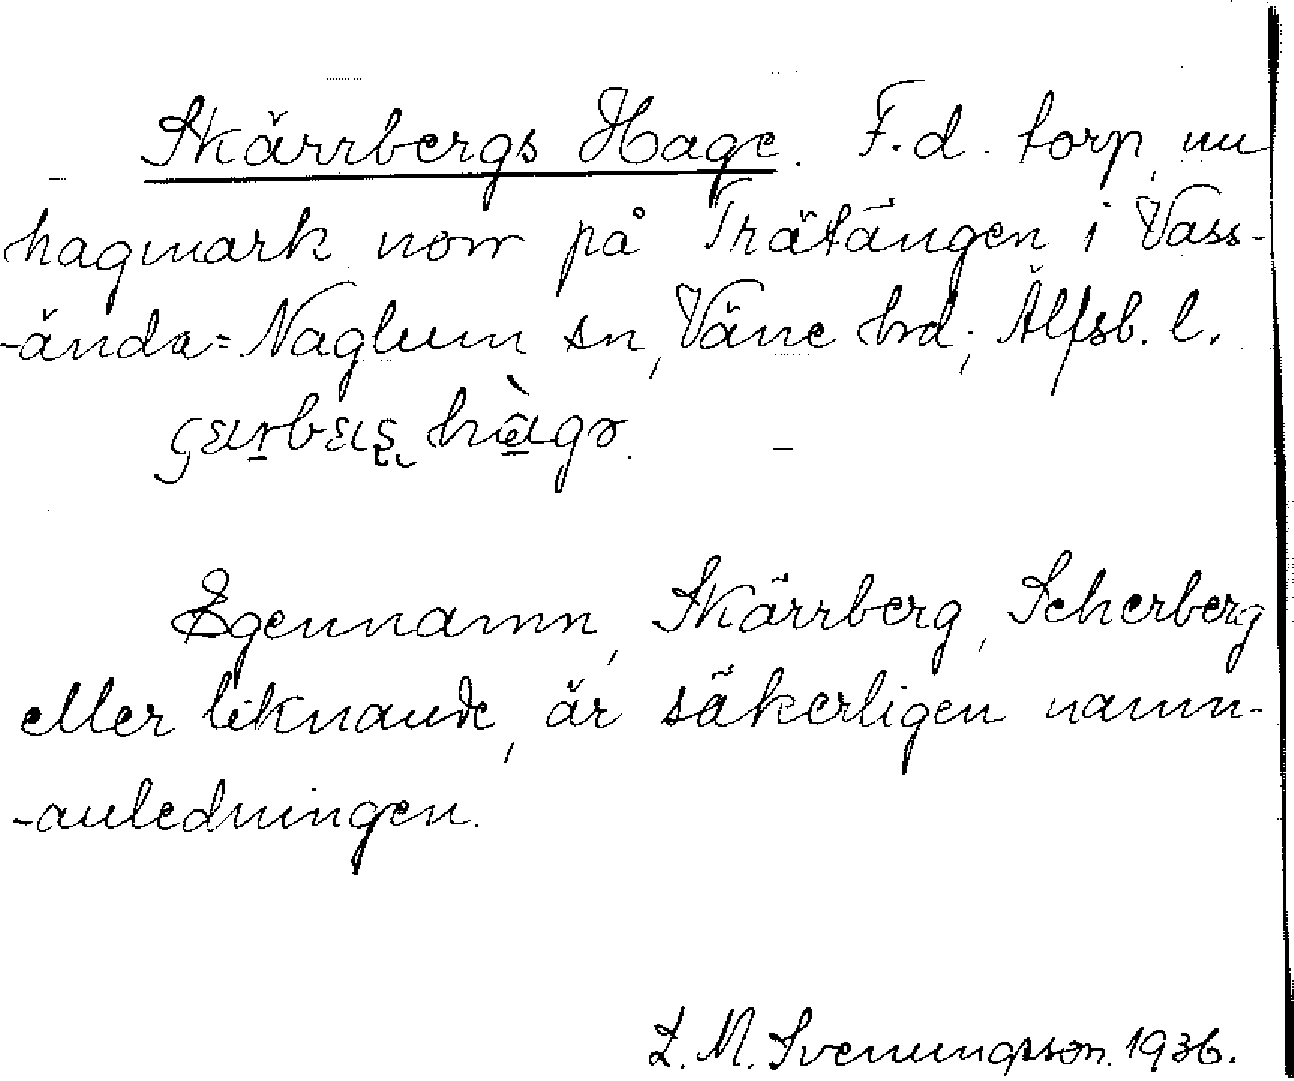 Skärrbergs Hage. F.d. torp, nu
hagmark norr på Trätången i Vass-
-ända-Naglum sn, Väne hrd; Älfsb. l.
hàgɘ.
Egennamn, Skärrberg, Scherberg
eller liknande, är säkerligen namn-
-anledningen.
L. M. Svenungsson. 1936.